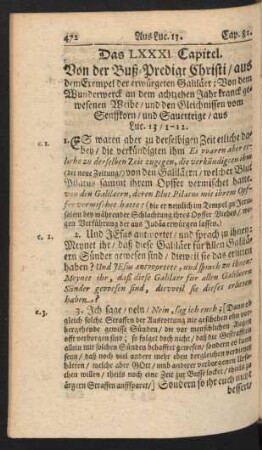 472 Aus Luc. 13. Cap. 81.
Das LXXXI. Capitel.
Von der Buß-Predigt Christi / aus
dem Exempel der erwürgeten Galiläer; Von dem
Wunderwerck an dem achtzehen Jahr kranck ge-
wesenen Weibe / und den Gleichnissen vom
Senffkorn / und Sauerteige / aus
Luc. 13 / 1-22.
c. 1. 1. ES waren aber zu derselbigen Zeit etliche da-
bey / die verkündigten ihm Es waren aber et-
liche zu derselben Zeit zugegen, die verkündigten ihm
(als neue Zeitung /) von den Galiläern / welcher Blut
Pilatus sammt ihrem Opffer vermischet hatte.
von den Galiläern, deren Blut Pilatus mit ihrem Opf-
fer vermischet hatte: (die er nemlich im Tempel zu Jeru-
salem bey währender Schlachtung ihres Opffer Viehes / we-
gen Verführung der aus Judäa erwürgen lassen.)
c. 2. 2. Und JEsus antwortet / und sprach zu ihnen:
Meynet ihr / daß diese Galiläer für allen Galiläern
Sünder gewesen sind / dieweil sie das erlitten
haben? Und JEsus antwortete, und sprach zu ihnen:
Meynet ihr, daß diese Galiläer für allen Galiläern
Sünder gewesen sind, dieweil sie dieses erlitten
haben.
c. 3. 3. Ich sage / nein / Nein, sag ich euch: [Dann ob-
gleich solche Straffen der Ausrottung nie geschehen ohn vor-
hergehende gewisse Sünden / die vor menschlichen Augen
oft verborgen sind; so folget doch nicht / daß die Gestrafften
allein mit solchen Sünden behafftet gewesen / sondern es kan
seyn / daß noch viel andere mehr eben dergleichen verdienet
hätten / welche aber GOtt / und anderer verschonen
wollen / theils noch eine Zeit zur Busse locket / theils zu
ärgern Straffen aufsparet /] Sondern so ihr euch nicht
bessert /